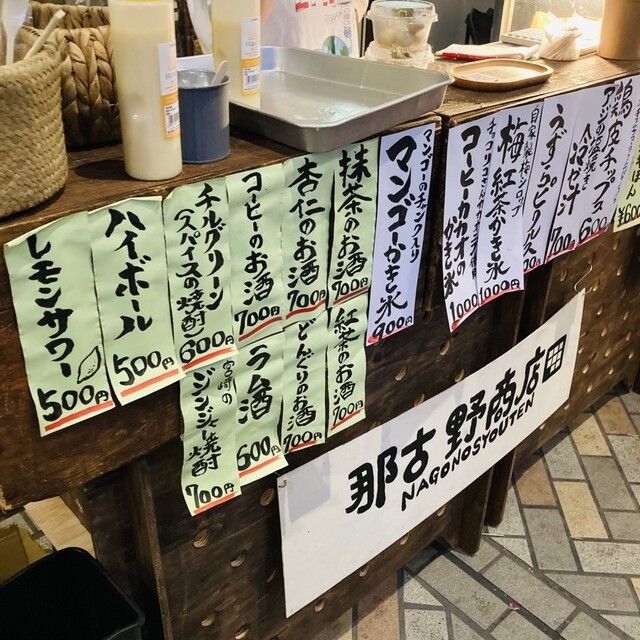 レモンサワー
500円
ハイボール
500円
チルグリーン
(スパイスの焼酎)
600円
コーヒーのお酒
700円
杏仁のお酒
700円
抹茶のお酒
700円
宮崎の
ジンジャー焼酎
700円
ラム酒
600円
どんぐりのお酒
700円
紅茶のお酒
700円
マンゴーのチャンク入り
マンゴーかき氷
900円
コーヒーカカオの
かき氷
1000円
梅紅茶かき氷
1000円
うずらピクルス
700円
600円
¥600
那古野商店
NAGONOSYOUTEN